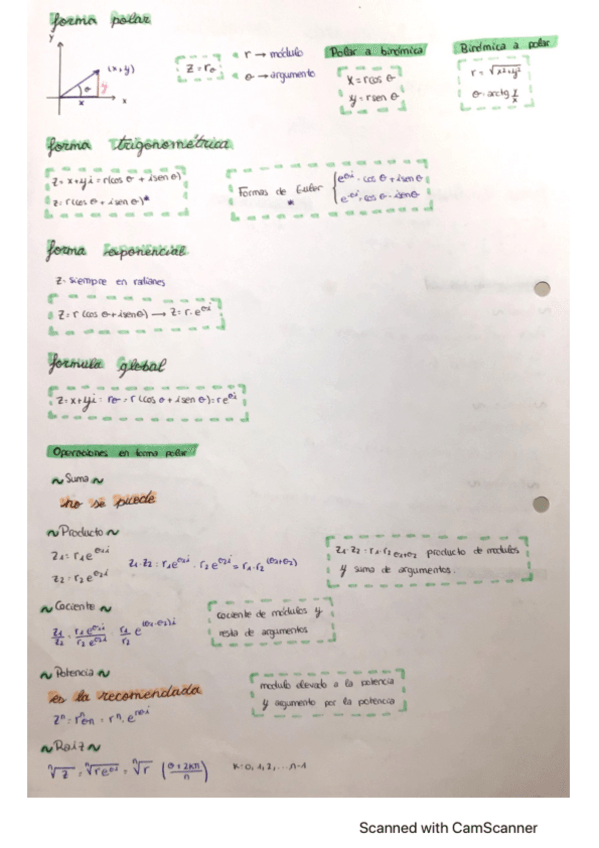 forma polar
y
(x,y)
θ
y
x
x
z = rθ
r → módulo
θ → argumento
Polar a binómica
x = r cos θ
y = r sen θ
Binómica a polar
r = √x²+y²
θ = arctg y/x
forma trigonométrica
z = x+yi = r(cos θ + i sen θ)
z = r(cos θ + i sen θ)*
Formas de Euler
*
e^θi = cos θ + i sen θ
e^-θi = cos θ - i sen θ
forma exponencial
z = siempre en radianes
z = r (cos θ + i sen θ) → z = r · e^θi
formula global
z = x+yi = rθ = r (cos θ + i sen θ) = r e^θi
Operaciones en forma polar
~ Suma ~
no se puede
~ Producto ~
z1 = r1 e^θ1i
z2 = r2 e^θ2i
z1 · z2 = r1 e^θ1i · r2 e^θ2i = r1 · r2 ^(θ1+θ2)
z1 · z2 = r1 · r2 θ1+θ2 producto de modulos
y suma de argumentos.
~ Cociente ~
z1/z2 = r1 e^θ1i / r2 e^θ2i = r1/r2 e^(θ1-θ2)i
cociente de módulos y
resta de argumentos
~ Potencia ~
es la recomendada
z^n = r^n θn = r^n · e^nθi
modulo elevado a la potencia
y argumento por la potencia
~ Raiz ~
ⁿ√z = ⁿ√r e^θi = ⁿ√r (θ + 2kπ / n)
k = 0, 1, 2, ... n-1
Scanned with CamScanner